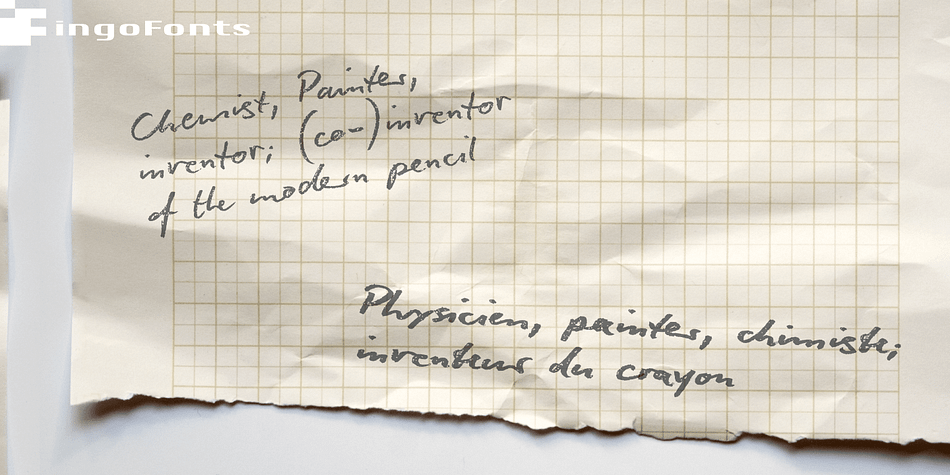 ingoFonts
Chemist, Painter,
inventor; (co-)inventor
of the modern pencil
Physicien, painter, chimiste;
inventeur du crayon